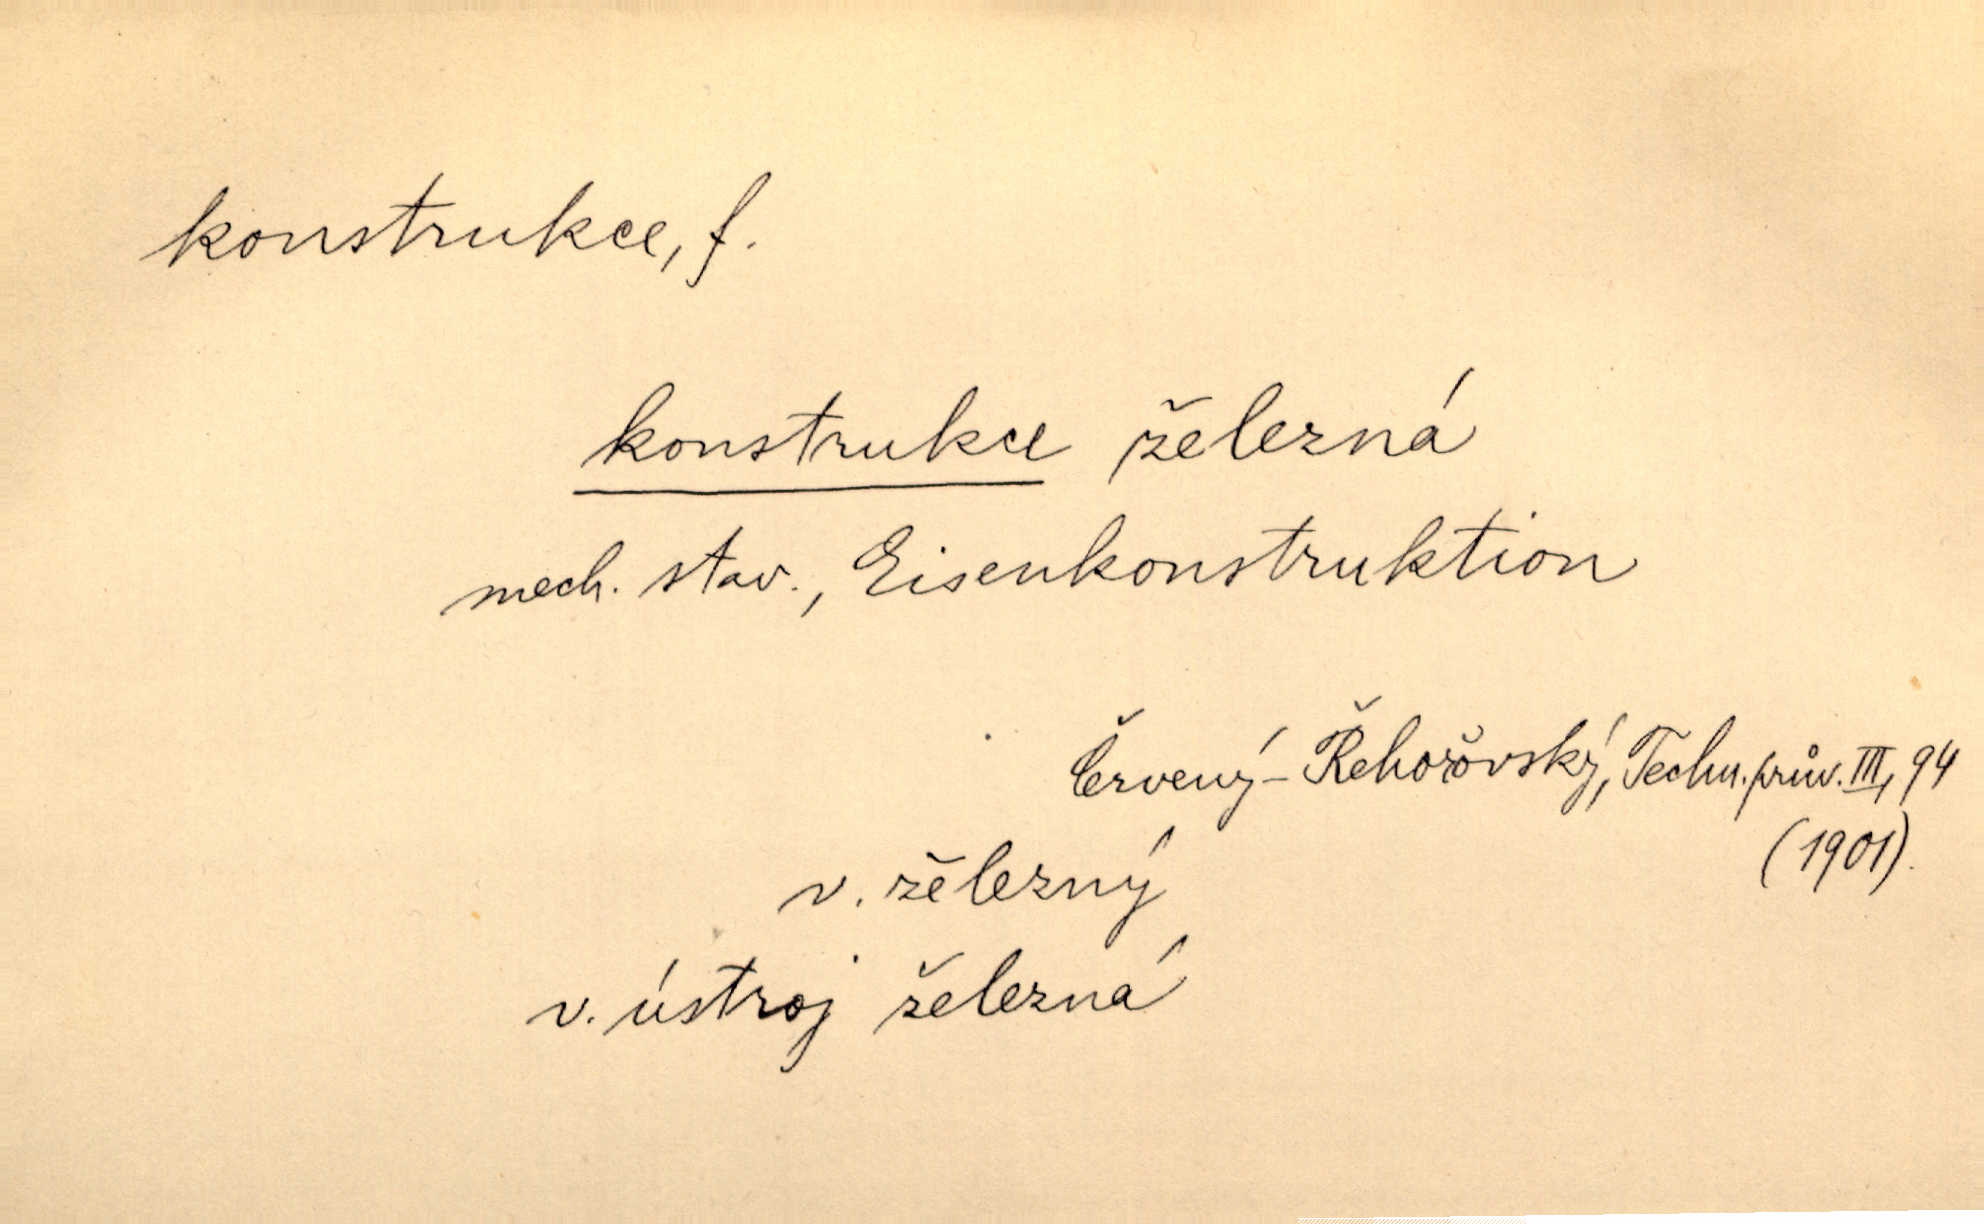 konstrukce, f.
konstrukce železná
mech. stav., Eisenkonstruktion
Červený-Řehořovský, Techn. prův. III, 94
(1901).
v. železný
v. ústroj železná